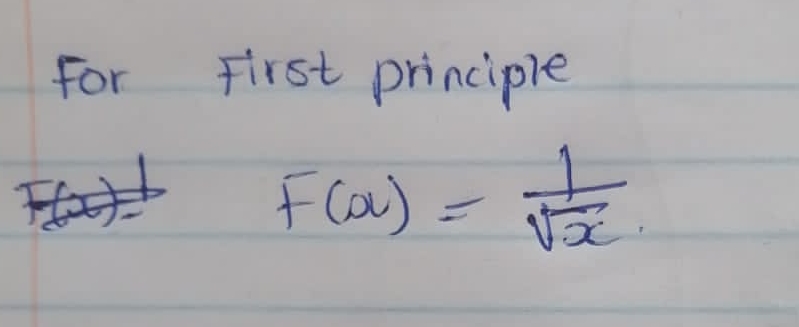 For First principle
F(x) = 1/√x.